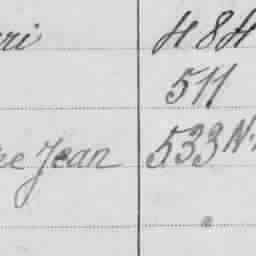 ri 484
511
re Jean 533 N.